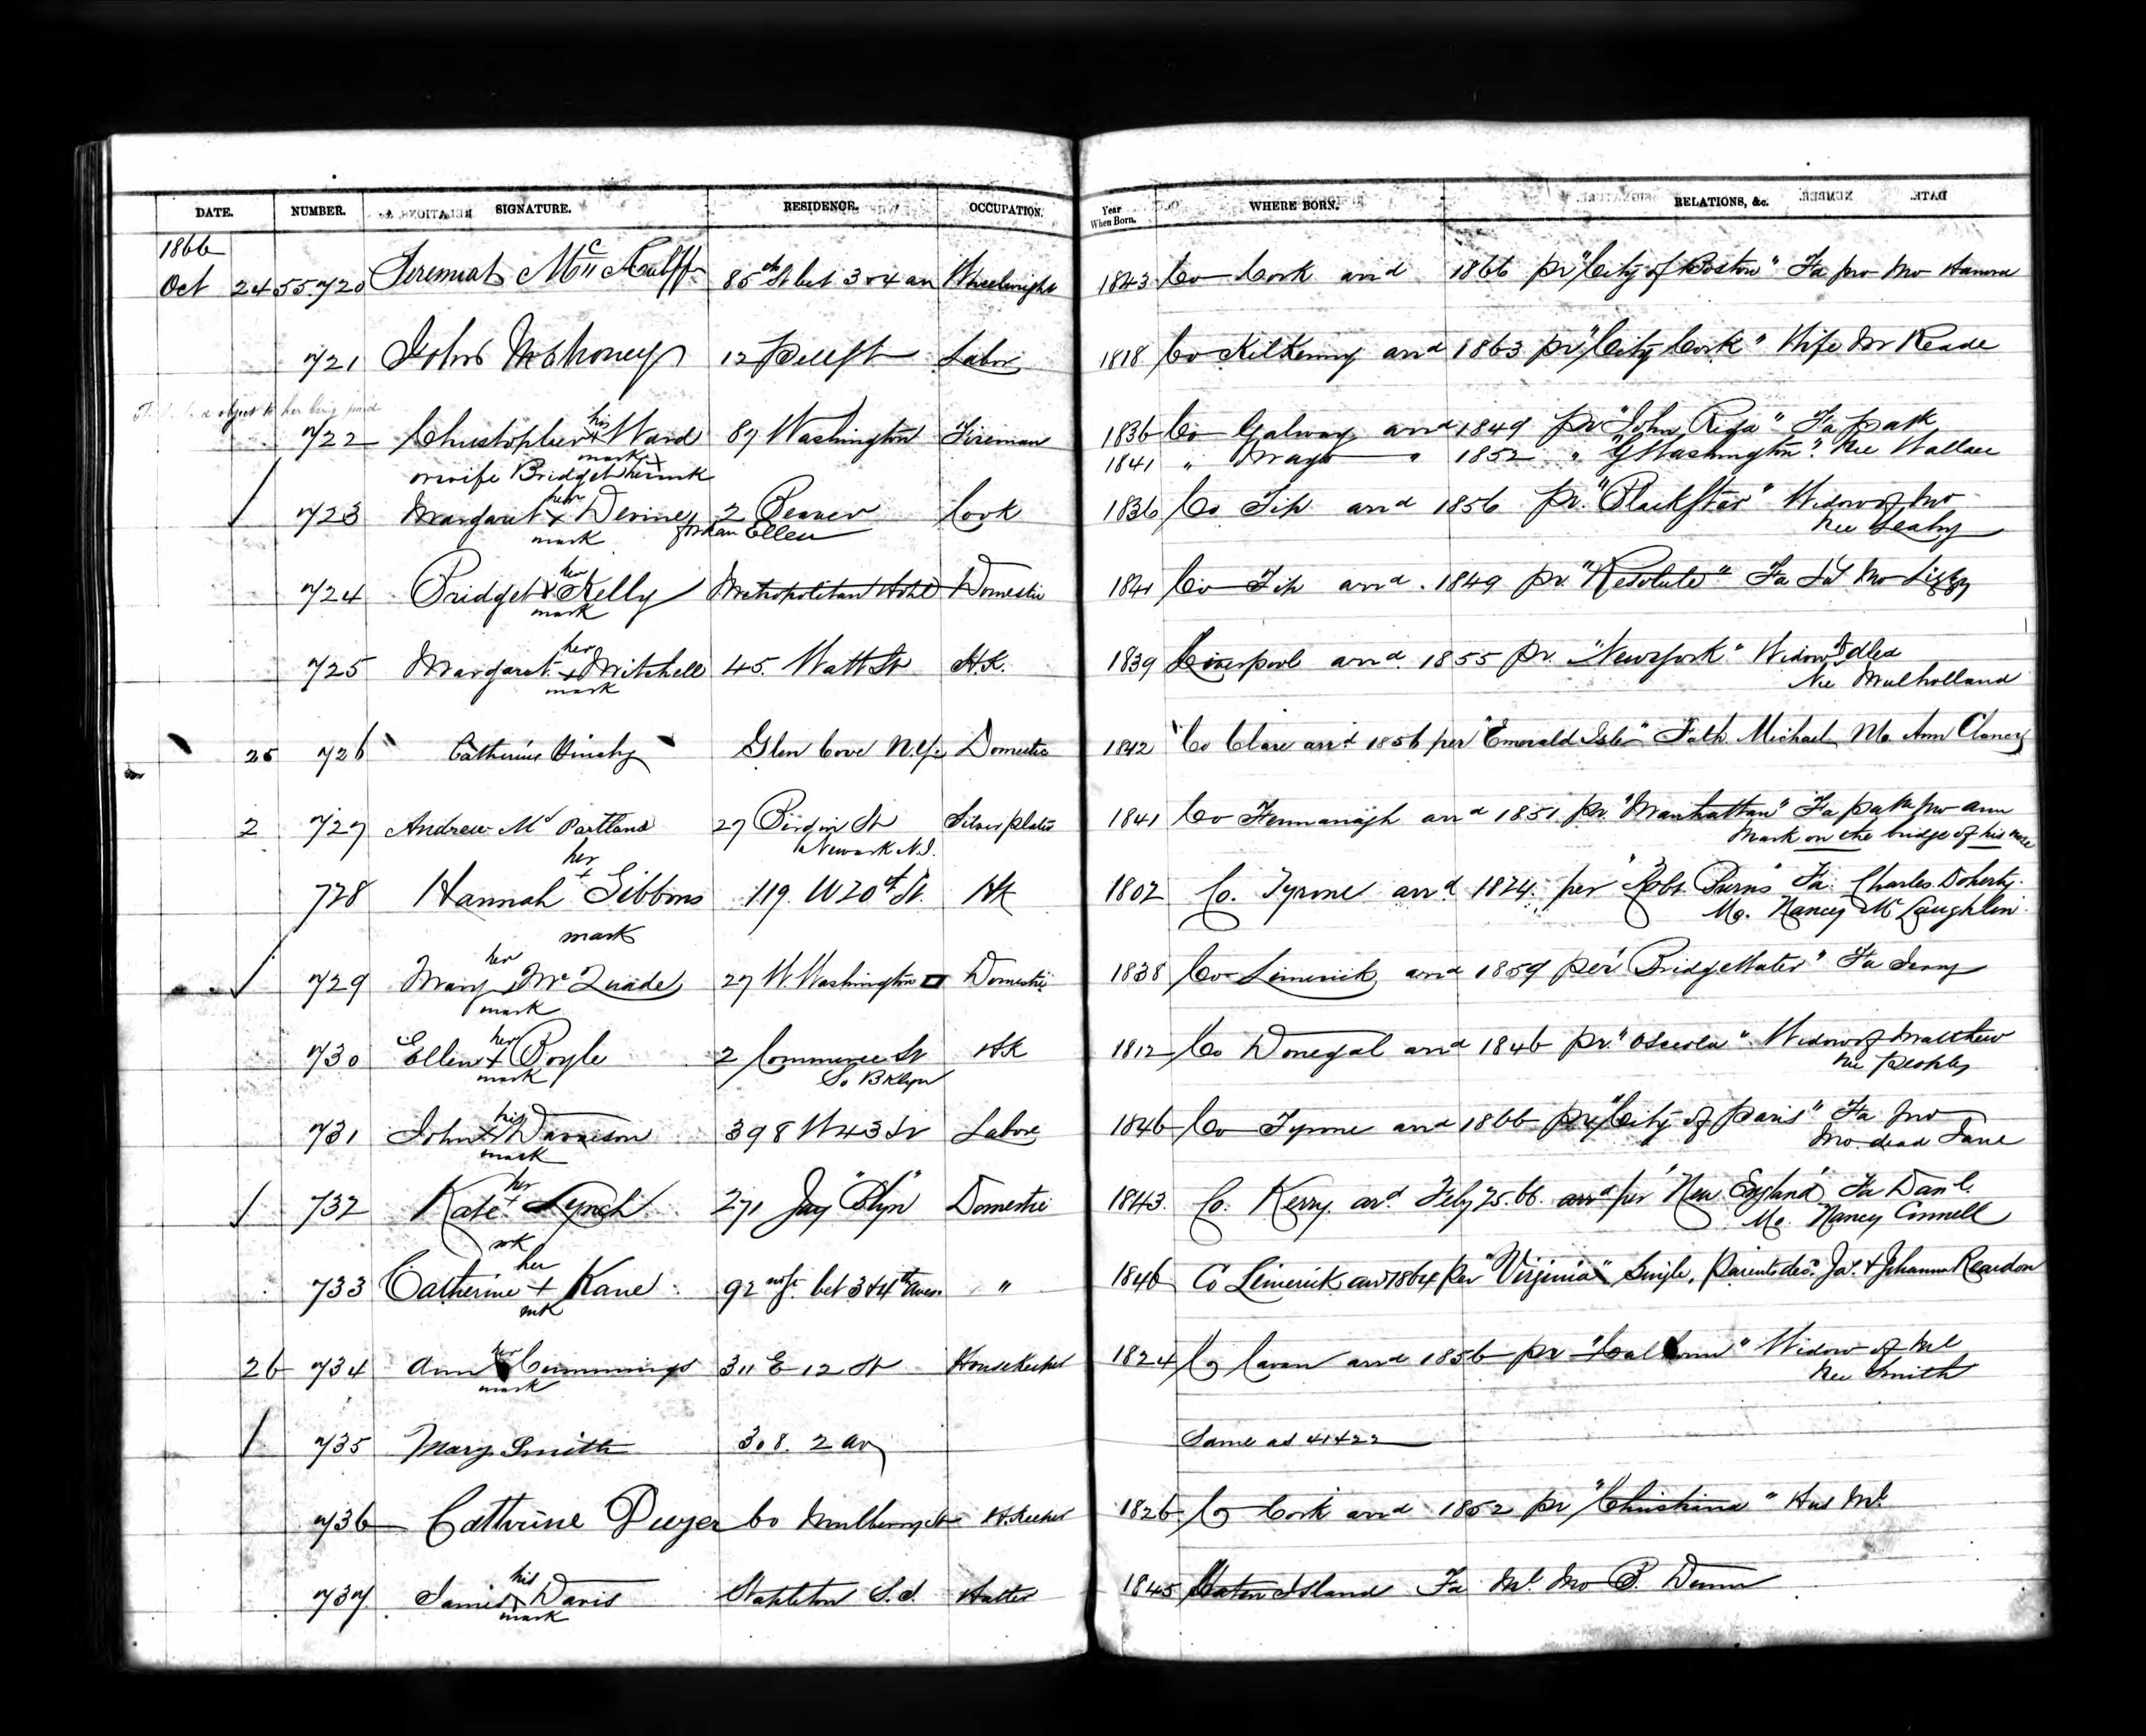 DATE. NUMBER. SIGNATURE. RESIDENCE. OCCUPATION. Year When Born. WHERE BORN. RELATIONS, &c.
1866
Oct 24 55720 Jeremiah Mc Auliff 85th St bet 3 & 4 av Wheelwright 1843 Co Cork arrd 1866 pr "City of Boston" Fa Jno Mo Hanora
721 John Mahoney 12 Pell St Labor 1818 Co Kilkenny arrd 1863 pr "City Cork" Wife Mr Keade
object to her being paid
722 Christopher his x mark Ward 87 Washington Fireman 1836 Co Galway arrd 1849 pr "John Riga" Fa Patk
or wife Bridget x her mark 1841 " Mayo " 1852 " "G Washington" Nee Wallace
723 Margaret her x mark Devine 2 Beaver Cook 1836 Co Tip arrd 1856 pr. "Black Star" Widow of Jno
Ellen Nee Leahy
724 Bridget her x mark Kelly Metropolitan Hotel Domestic 1841 Co Tip arrd. 1849 pr. "Resolute" Fa Mo Lizzy
725 Margaret her x mark Mitchell 45. Watt St H.K. 1839 Liverpool arrd. 1855 pr. "New York" Widow of
Nee Mulholland
25 726 Catherine Glen Cove N.Y. Domestic 1842 Co Clare arrd 1856 per "Emerald Isle" Fath. Michael Mo. Ann Clancy
2 727 Andrew Mc Partland 27 St Silver plater 1841 Co Fermanagh arrd 1851 pr. "Manhattan" Fa Patk Mo Ann
Newark N.J. Mark on the bridge of his nose
728 Hannah her + mark Gibbons 119. W 20th St. HK 1802 Co. Tyrone arrd 1824. per "Robt Burns" Fa. Charles Doherty.
Mo. Nancy Mc Laughlin.
729 Mary her x mark Mc Quade 27 W. Washington □ Domestic 1838 Co Limerick arrd 1859 per "Bridgewater" Fa Jerry
730 Ellen her x mark Boyle 2 Commerce St HK 1812 Co Donegal arrd 1846 pr. "Osceola" Widow of Matthew
So Bklyn Nee Peoples
731 John his x mark Davison 398 W 43 St Labor 1846 Co Tyrone arrd 1866 pr "City of Paris" Fa Jno
Mo dead Jane
732 Kate her + mk Lynch 271 Jay "Blyn" Domestic 1843. Co. Kerry. ard. Feby 25. 66. arrd per "New England" Fa Danl.
Mo. Nancy Connell
733 Catherine her + mk Kane 92nd St. bet 3 & 4th Aven " 1846 Co Limerick arr 1864 per "Virginia" Single, Parents dec. Jas. & Johanna Reardon
26 734 Ann her mark Cummings 311 E 12 St Housekeeper 1824 Co Cavan arrd 1856 pr "Calhoun" Widow of Ml
Nee Smith
735 Mary Smith 308. 2 av Same as 41422
736 Catherine Dwyer 60 Mulberry St H.Keeper 1826 Co Cork arrd 1852 pr "Christiana" Hus Ml
737 James his x mark Davis Stapleton S.I. Hatter 1845 Staten Island Fa Ml Mo B. Dunn